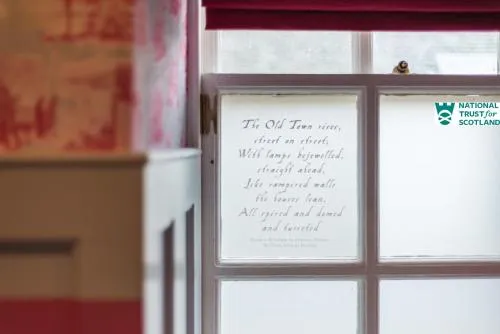 The Old Town rises,
street on street;
With lamps bejewelled,
straight ahead,
Like rampired walls
the houses lean,
All spired and domed
and turreted
NATIONAL
TRUST for
SCOTLAND